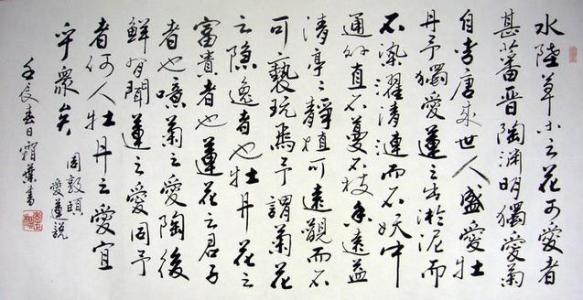 水陸草木之花可愛者
甚蕃晋陶渊明獨愛菊
自李唐來世人盛愛牡
丹予獨愛蓮之出淤泥而
不染濯清漣而不妖中
通外直不蔓不枝香遠益
清亭々靜植可遠觀而不
可褻玩焉予謂菊花
之隐逸者也牡丹花之
富貴者也蓮花之君子
者也噫菊之愛陶後
鮮有聞蓮之愛同予
者何人牡丹之愛宜
乎眾矣
周敦頤
愛蓮説
壬辰春日霜葉書